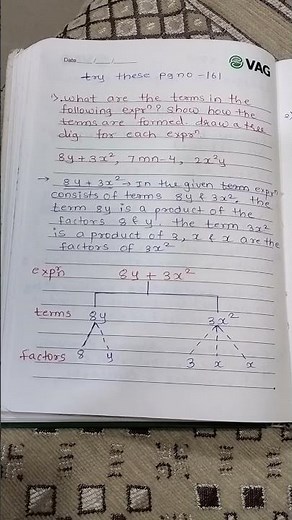 Date ___/___/___
VAG
try these pg no - 161
1>. what are the terms in the
following exprⁿ? Show how the
terms are formed draw a tree
dig. for each exprⁿ.
8y + 3x², 7mn-4, 2x²y
→ 8y + 3x² → In the given term exprⁿ
consists of terms 8y & 3x², the
term 8y is a product of the
factors 8 & y, the term 3x²
is a product of 3, x & x are the
factors of 3x²
expⁿ 8y + 3x²
terms 8y 3x²
factors 8 y 3 x x